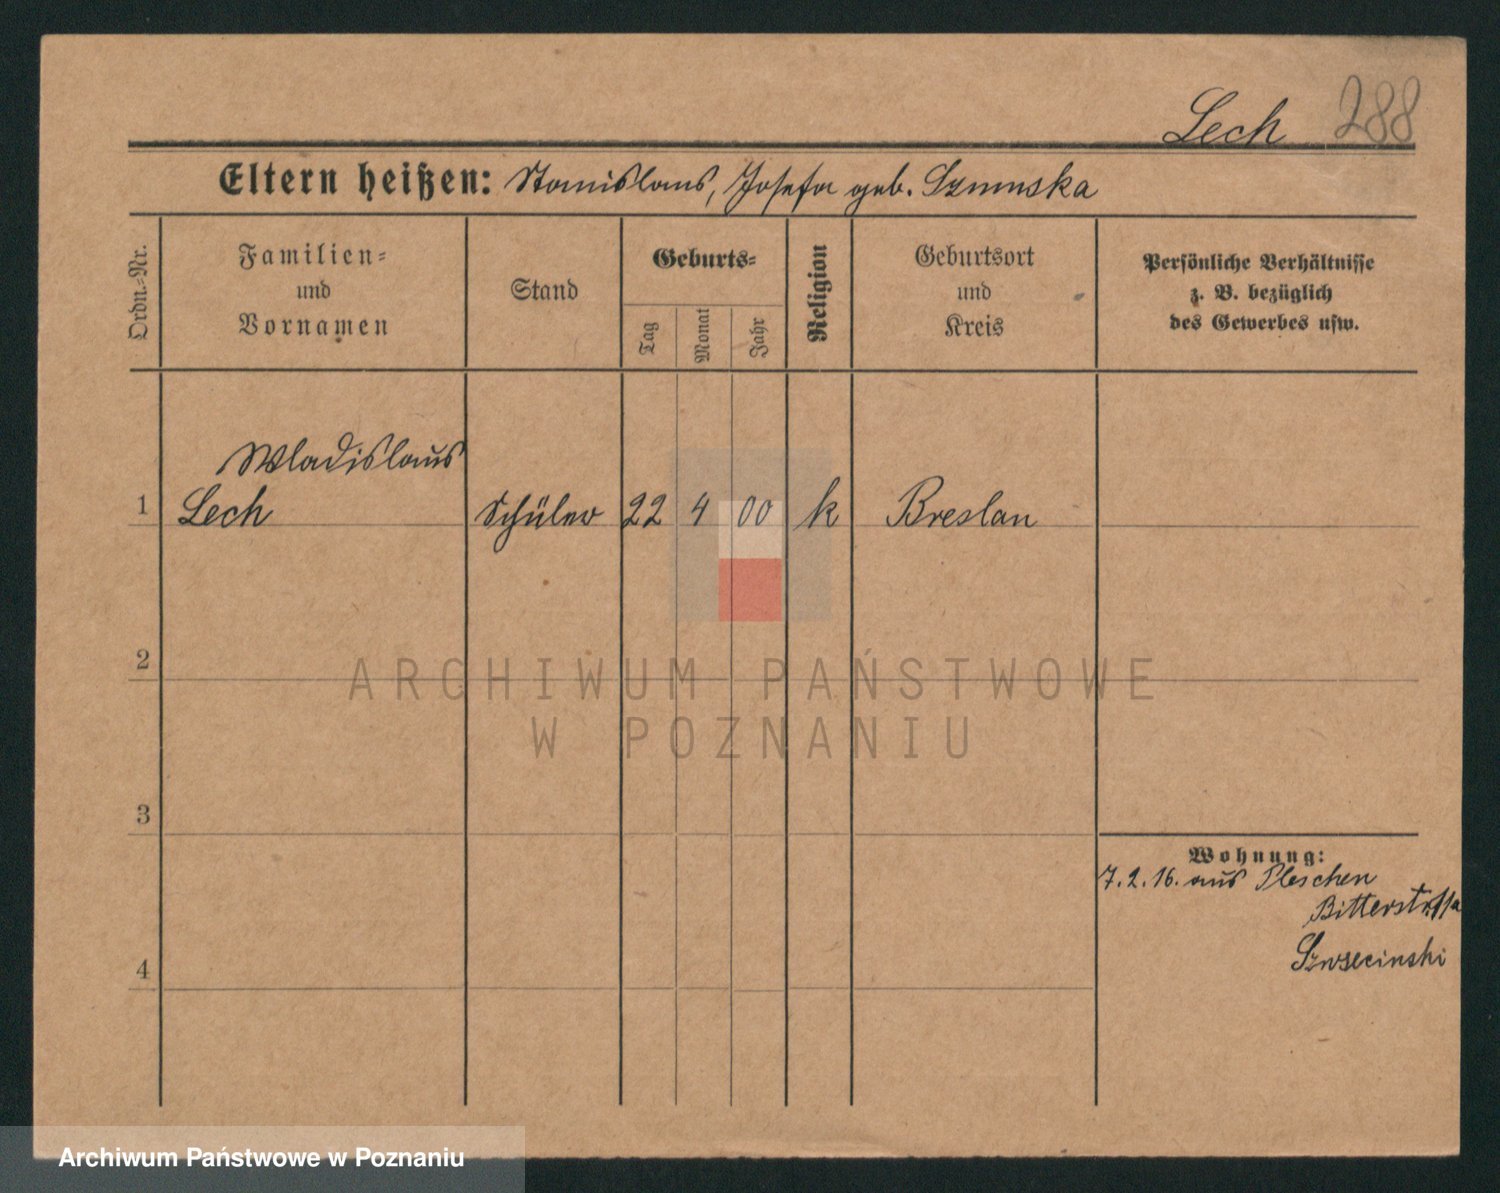 Lech 288
Eltern heißen: Stanislaus, Josefa geb.
Ordn.-Nr.
Familien-
und
Vornamen
Stand
Geburts-
Tag
Monat
Jahr
Religion
Geburtsort
und
Kreis
Persönliche Verhältnisse
z. B. bezüglich
des Gewerbes usw.
Wladislaus
1 Lech Schüler 22 4 00 k Breslau
2
3
4
Wohnung:
7.2.16. aus Pleschen
Bitterstr.
ARCHIWUM PAŃSTWOWE
W POZNANIU
Archiwum Państwowe w Poznaniu